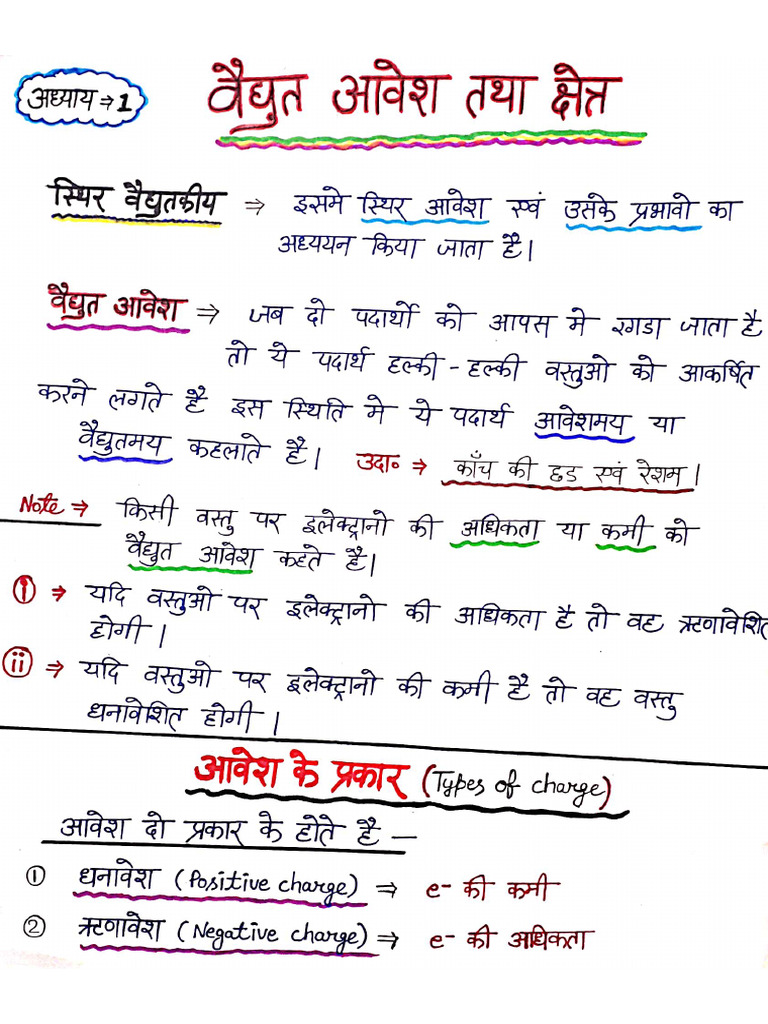 अध्याय ⇒ 1
वैद्युत आवेश तथा क्षेत्र
स्थिर वैद्युतकीय ⇒ इसमे स्थिर आवेश एवं उसके प्रभावो का
अध्ययन किया जाता है।
वैद्युत आवेश ⇒ जब दो पदार्थो को आपस मे रगडा जाता है
तो ये पदार्थ हल्की - हल्की वस्तुओ को आकर्षित
करने लगते है इस स्थिति मे ये पदार्थ आवेशमय या
वैद्युतमय कहलाते है। उदा॰ ⇒ काँच की छड एवं रेशम।
Note ⇒ किसी वस्तु पर इलेक्ट्रानो की अधिकता या कमी को
वैद्युत आवेश कहते है।
(i) ⇒ यदि वस्तुओ पर इलेक्ट्रानो की अधिकता है तो वह ऋणावेशित
होगी।
(ii) ⇒ यदि वस्तुओ पर इलेक्ट्रानो की कमी है तो वह वस्तु
धनावेशित होगी।
आवेश के प्रकार (Types of charge)
आवेश दो प्रकार के होते है —
① धनावेश (Positive charge) ⇒ e- की कमी
② ऋणावेश (Negative charge) ⇒ e- की अधिकता